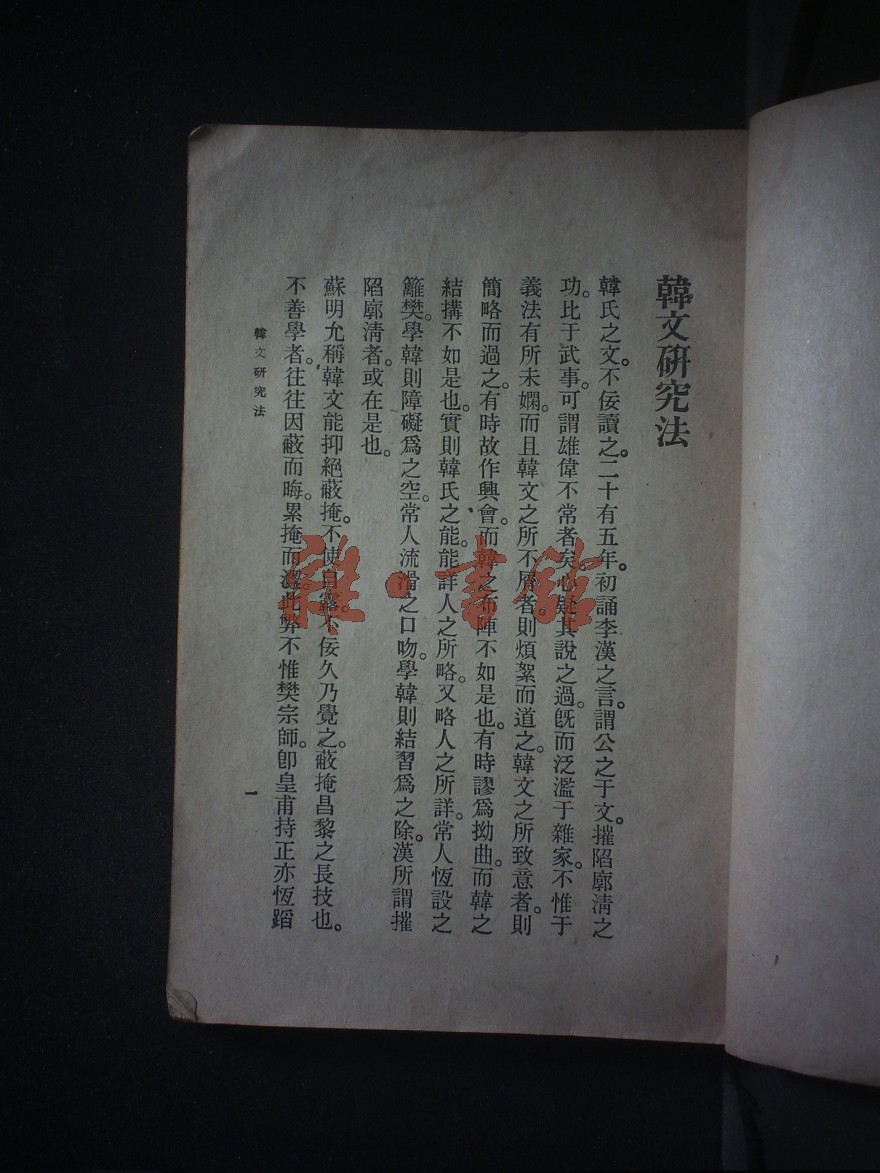 韓文硏究法
韓氏之文。不佞讀之。二十有五年。初誦李漢之言。謂公之于文。摧陷廓淸之
功。比于武事。可謂雄偉不常者矣。心疑其說之過。旣而泛濫于雜家。不惟于
義法有所未嫻。而且韓文之所不屑者。則煩絮而道之。韓文之所致意者。則
簡略而過之。有時故作興會。而韓之布陣不如是也。有時謬爲拗曲。而韓之
結搆不如是也。實則韓氏之能。能詳人之所略。又略人之所詳。常人恆設之
籬樊。學韓則障礙爲之空。常人流滑之口吻。學韓則結習爲之除。漢所謂摧
陷廓淸者。或在是也。
蘇明允稱韓文能抑絕蔽掩。不使自露。不佞久乃覺之。蔽掩昌黎之長技也。
不善學者。往往因蔽而晦。累掩而澀。此弊不惟樊宗師。卽皇甫持正亦恆蹈
韓文硏究法
一
雜·書館